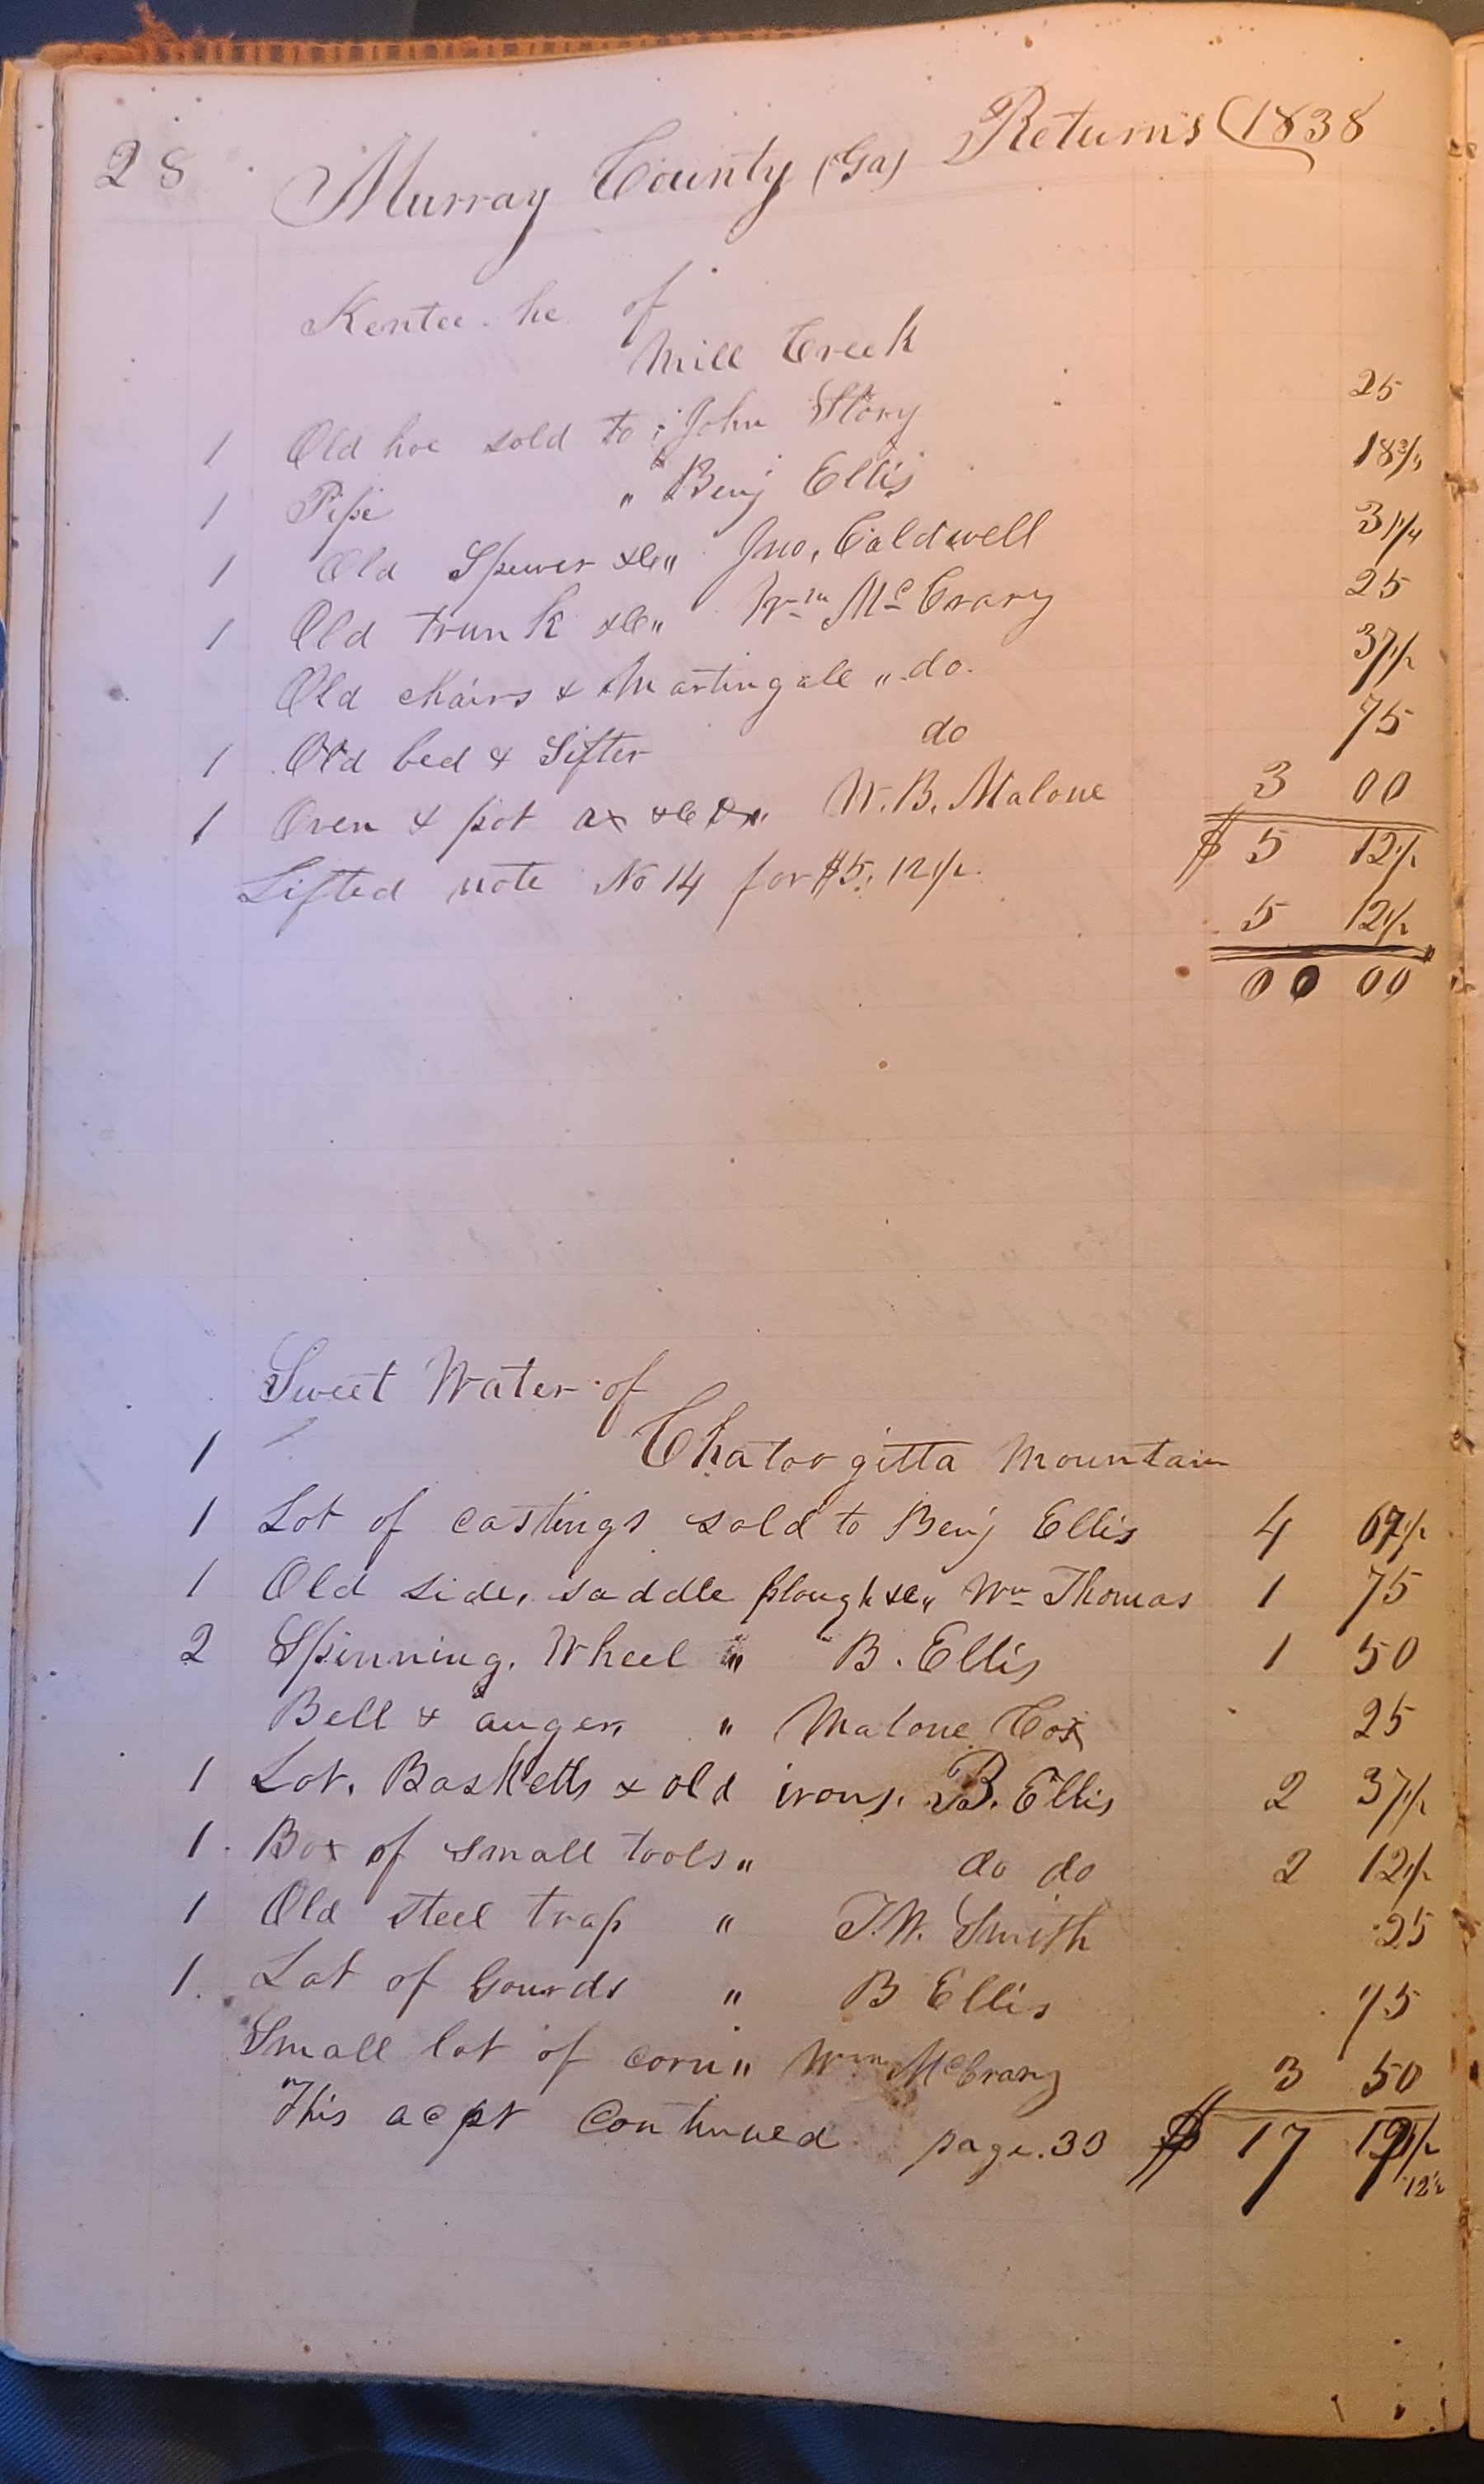 28 Murray County (Ga) Returns (1838
Kentee. he of
Mill Creek
1 Old hoe sold to John Story 25
1 Pipe " Benj Ellis 18 3/4
1 Old &c " Jno. Caldwell 31 1/4
1 Old trunk &c " Wm McCrary 25
Old chairs & Martingale " do. 37 1/2
1 Old bed & Sifter do 75
1 Oven & pot ax &c " W. B. Malone 3 00
$ 5 12 1/2
Lifted note No 14 for $5. 12 1/2. 5 12 1/2
00 00
Sweet Water of
1 Chatoogitta Mountain
1 Lot of castings sold to Benj Ellis 4 67 1/2
1 Old side, saddle plough &c " Wm Thomas 1 75
2 Spinning. Wheel " B. Ellis 1 50
Bell & auger, " Malone Cox 25
1 Lot. Basketts & old irons. B. Ellis 2 37 1/2
1. Box of small tools " do do 2 12 1/2
1 Old steel trap " T. W. Smith 25
1. Lot of Gourds " B Ellis 75
Small lot of corn " Wm McCrary 3 50
This acpt Continued page. 33 $ 17
12 1/2